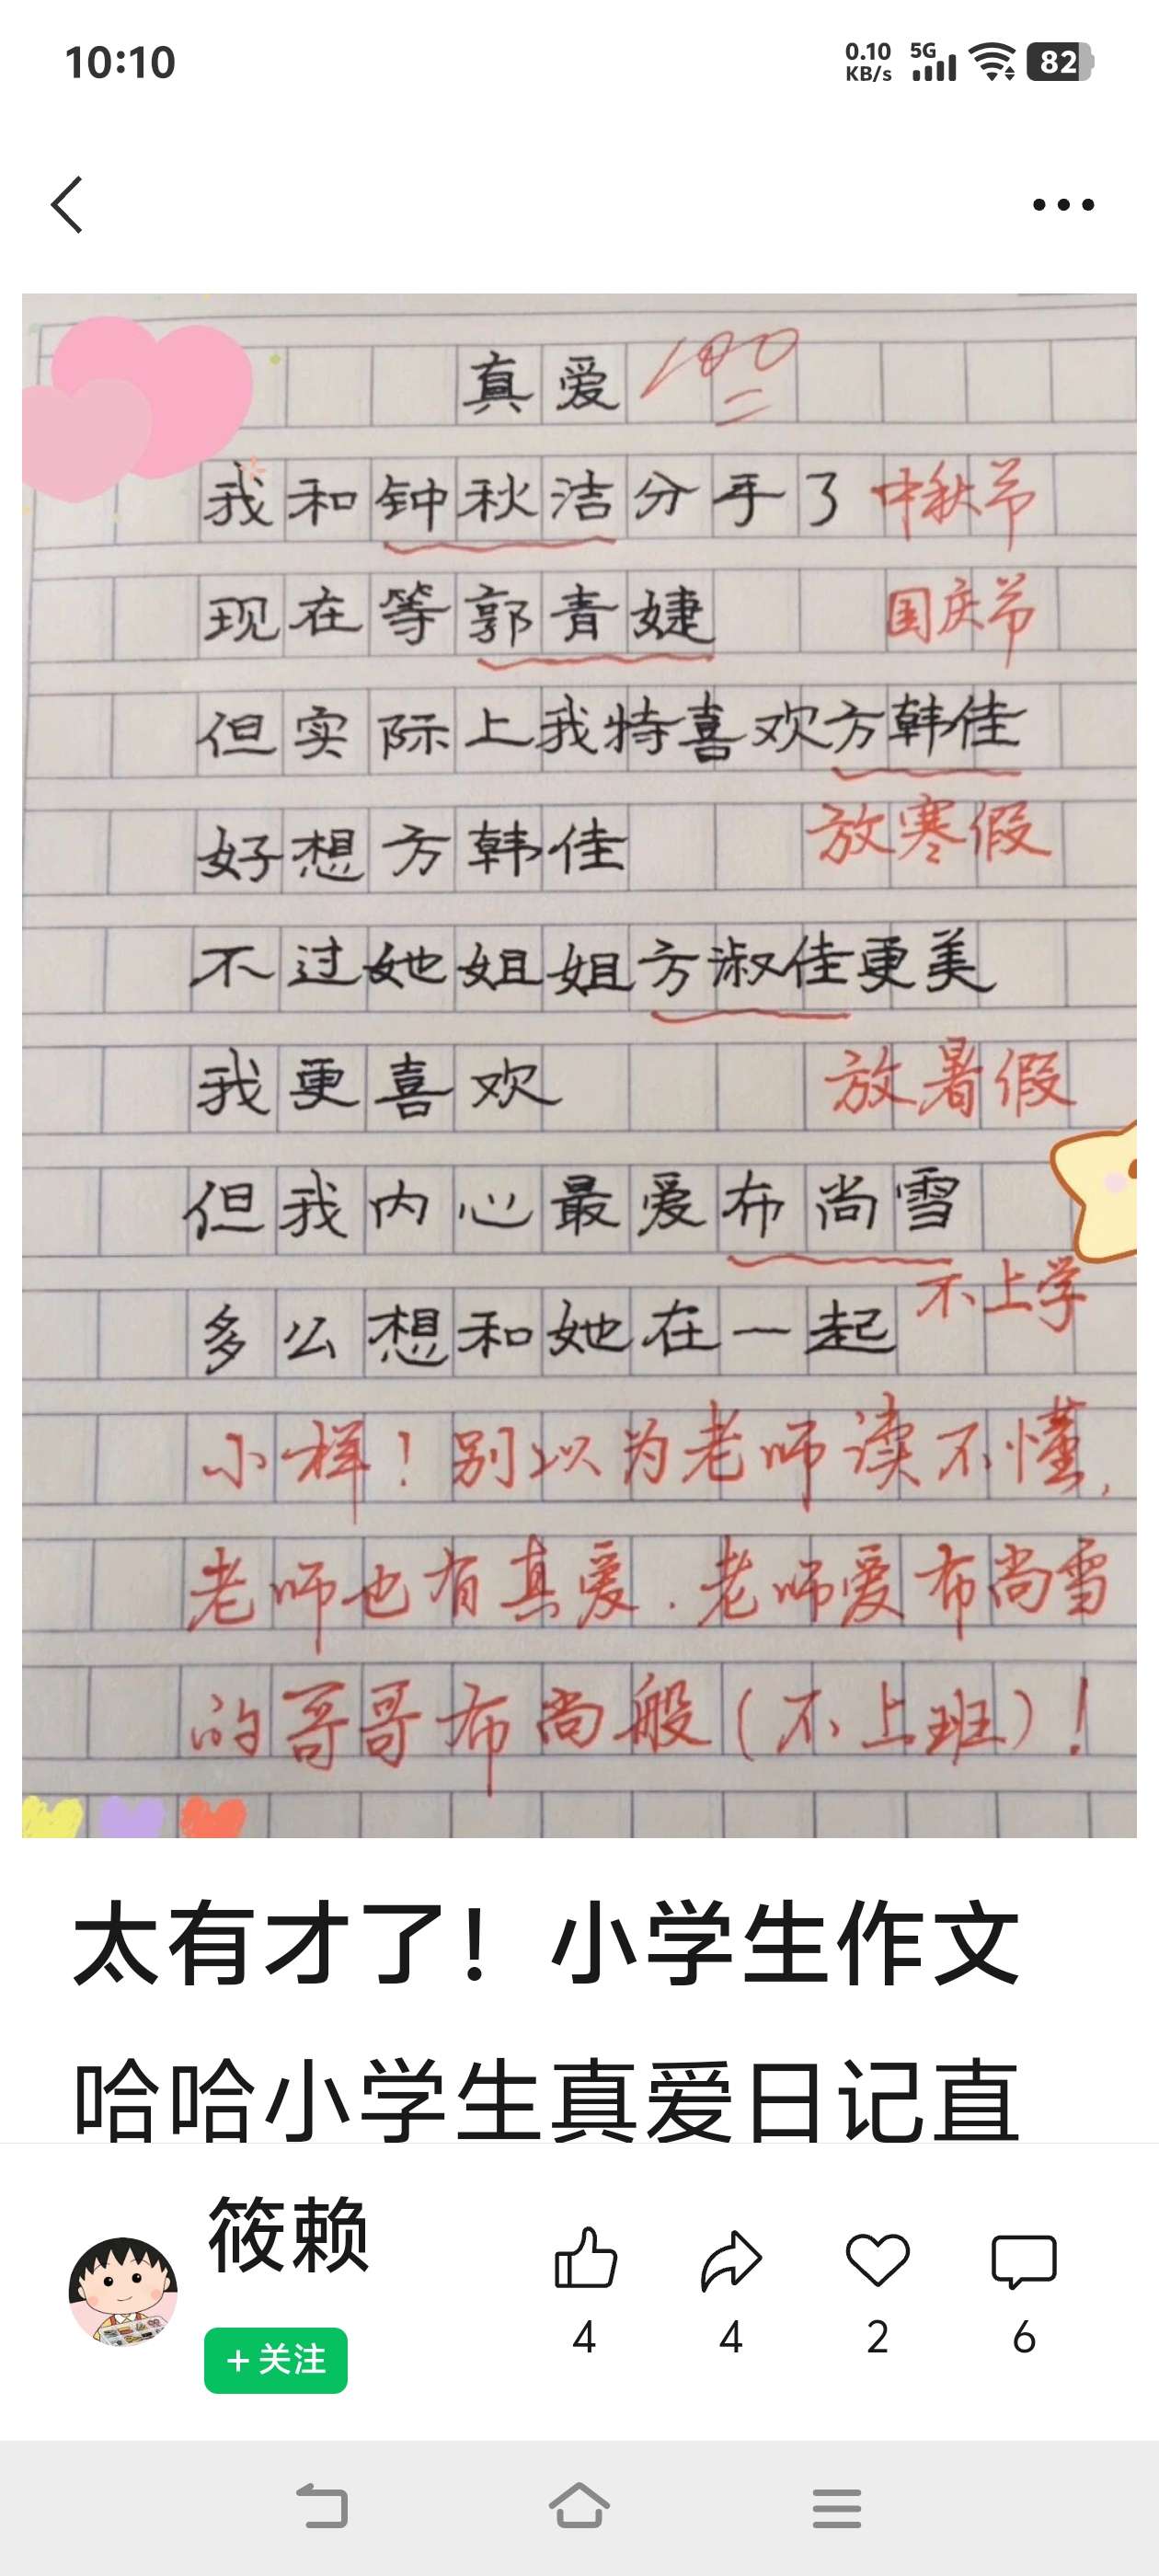 10:10
0.10 KB/s 5G 82
真爱 100
我和钟秋洁分手了 中秋节
现在等郭青婕 国庆节
但实际上我特喜欢方韩佳
好想方韩佳 放寒假
不过她姐姐方淑佳更美
我更喜欢 放暑假
但我内心最爱布尚雪
多么想和她在一起 不上学
小样！别以为老师读不懂,
老师也有真爱.老师爱布尚雪
的哥哥布尚般(不上班)！
太有才了！小学生作文
哈哈小学生真爱日记直
筱赖
+ 关注
4 4 2 6